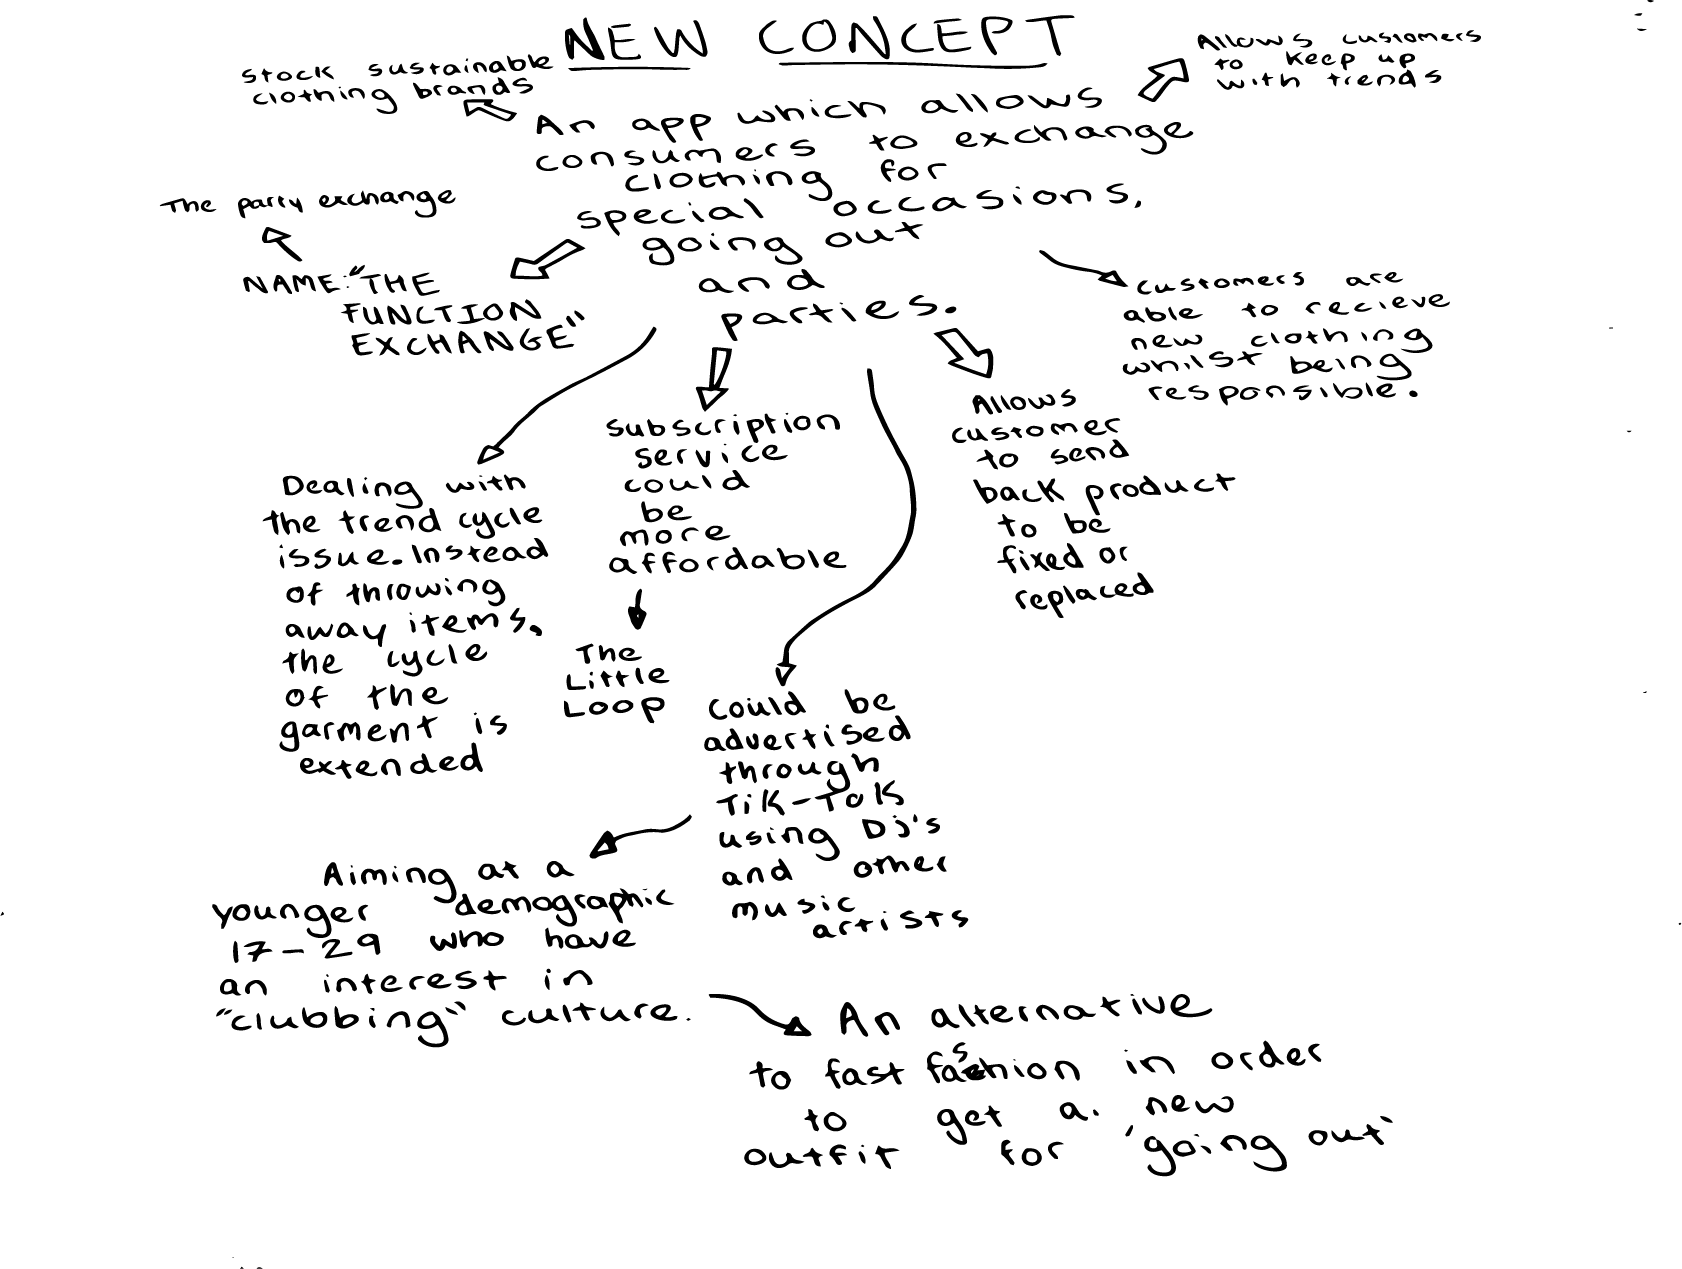 NEW CONCEPT
Stock sustainable
clothing brands
Allows customers
to keep up
with trends
An app which allows
consumers to exchange
clothing for
special occasions,
going out
and
parties.
The party exchange
NAME: "THE
FUNCTION
EXCHANGE"
Customers are
able to recieve
new clothing
whilst being
responsible.
Dealing with
the trend cycle
issue. Instead
of throwing
away items,
the cycle
of the
garment is
extended
Subscription
service
could
be
more
affordable
The
Little
Loop
Allows
customer
to send
back product
to be
fixed or
replaced
Could be
advertised
through
Tik-Tok
using Dj's
and other
music
artists
Aiming at a
younger demographic
17-29 who have
an interest in
"clubbing" culture.
An alternative
to fast fashion in order
to get a new
outfit for 'going out'